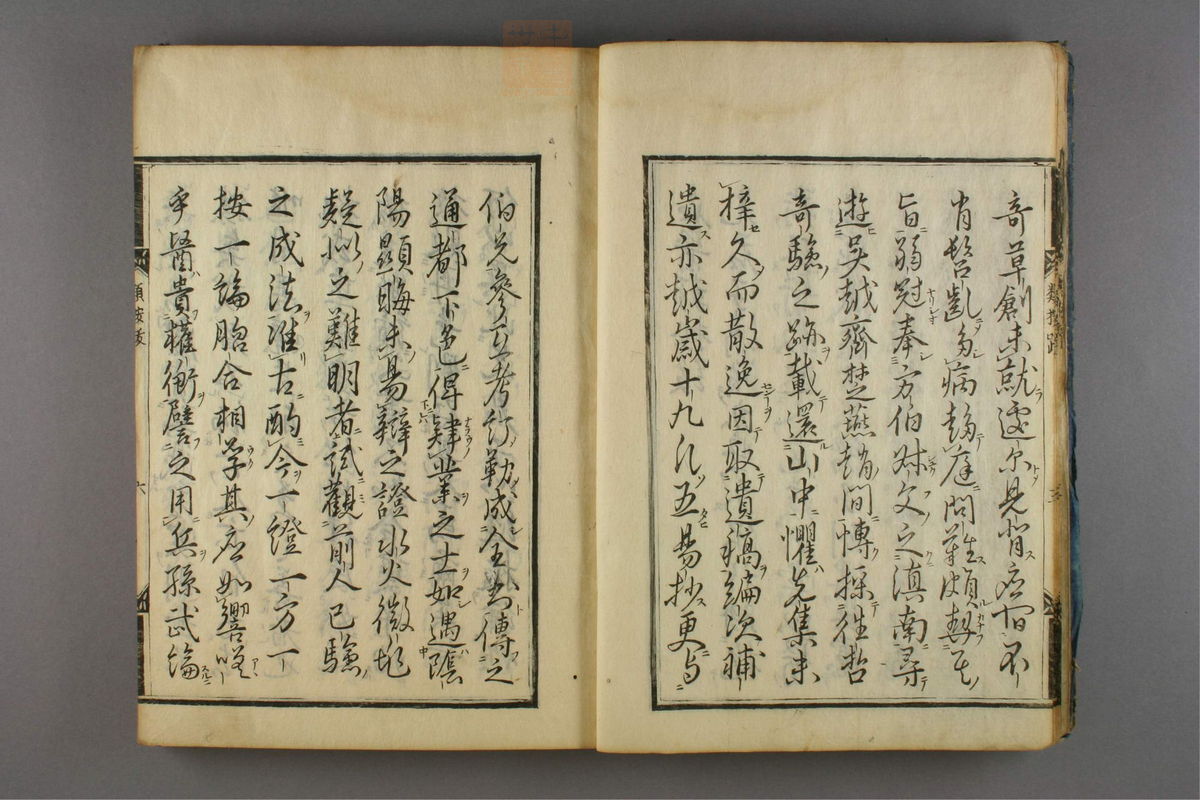 奇草創未就遽尓見背应宿不
肖髫齔多病趨庭問難頗契其
旨弱冠奉方伯叔父之滇南尋
遊吳越齊楚燕趙間博採徃哲
奇驗之跡載還山中懼先集未
梓久而散逸因取遺稿編次補
遺亦越歲十九凡五易抄更与
伯兄參互考訂勒成全書傳之
通都下邑俾肄業之士如遇陰
陽顯晦未易辯之證水火徵兆
疑似之難明者試觀前人已驗
之成法准古酌今一證一方一
按一論脗合相孚其应如響嗟
乎醫貴權衡譬之用兵孫武論
類按跋
六